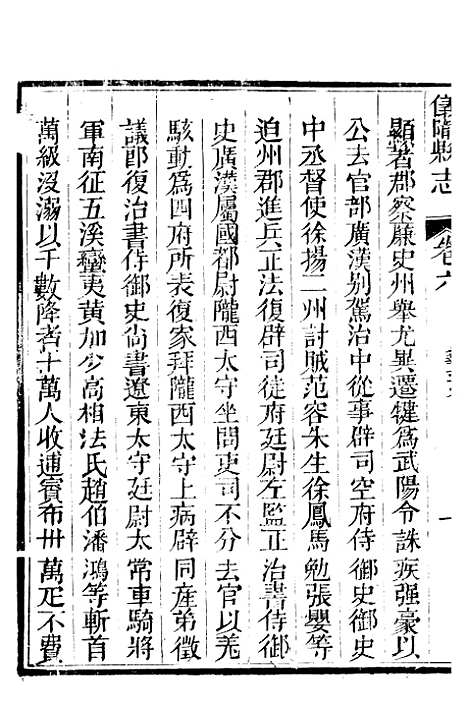 縣志 卷六
顯著郡察廉史州舉尤異遷犍爲武陽令誅疾强豪以
公去官部廣漢别駕治中從事辟司空府侍御史御史
中丞督使徐揚二州討賊范容朱生徐鳳馬勉張嬰等
迫州郡進兵正法復辟司徒府廷尉左監正治書侍御
史廣漢屬國都尉隴西太守坐問吏司不分去官以羌
駭動爲四府所表復家拜隴西太守上病辟同産弟徵
議郎復治書侍御史尚書遼東太守廷尉太常車騎將
軍南征五溪蠻夷黄加少高相法氏趙伯潘鴻等斬首
萬級没溺以千數降者十萬人收逋賓布卅萬疋不費